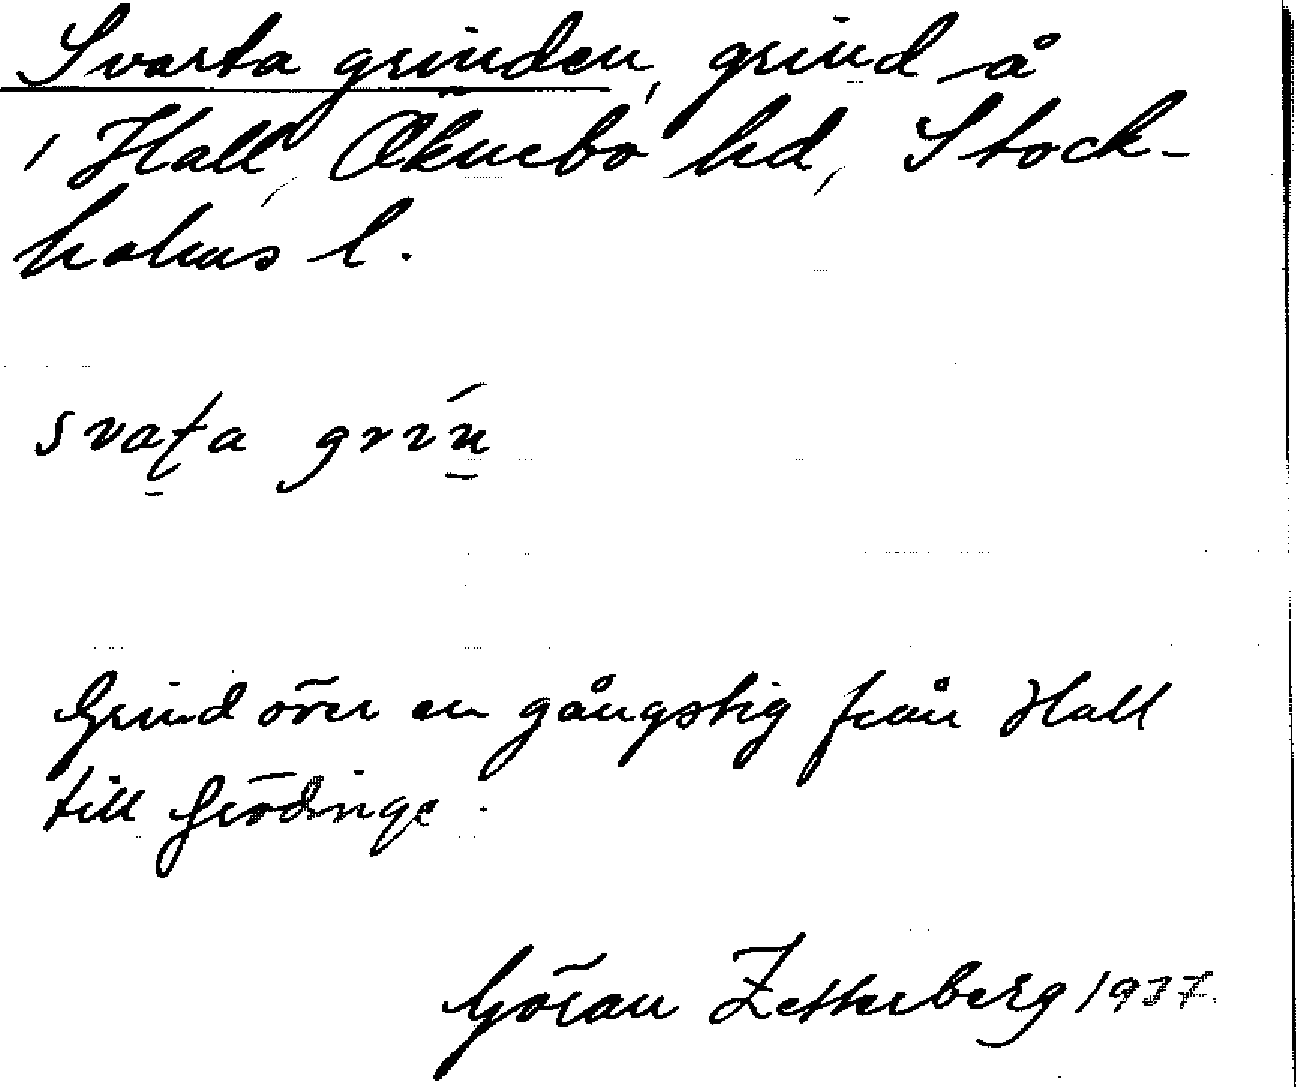 Svarta grinden, grind å
i Hall, Öknebo hd, Stock-
holms l.
svaṯa griṉ
Grind över en gångstig från Hall
till Grödinge.
Göran Zetterberg 1937.